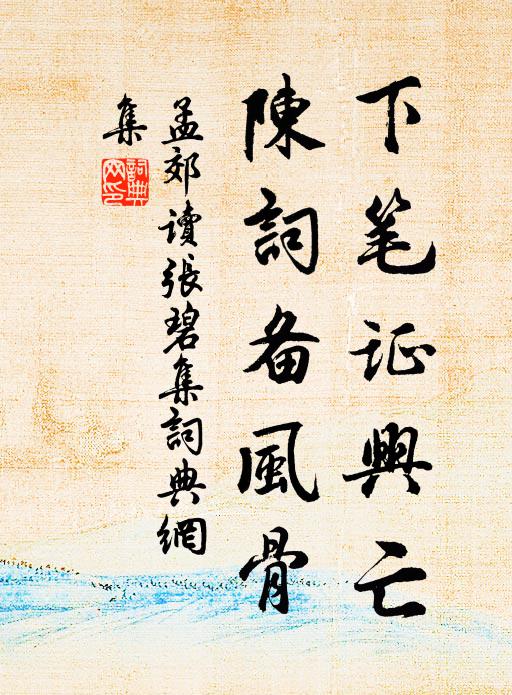 下笔证興亡
陳詞备風骨
孟郊讀張碧集詞典網
集
詞典
网印